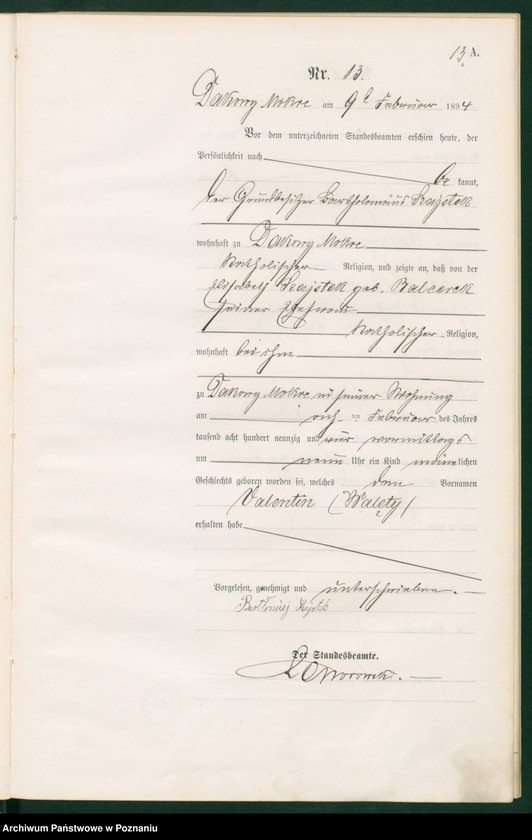 13. A.
Nr. 13.
Dakowy Mokre am 9t Februar 1894
Vor dem unterzeichneten Standesbeamten erschien heute, der
Persönlichkeit nach
be kannt,
der Grundbesitzer Bartholomäus
wohnhaft zu Dakowy Mokre
katholischer Religion, und zeigte an, daß von der
Elisabeth geb. Balcerek
seiner Ehefrau
katholischer Religion,
wohnhaft bei ihm
zu Dakowy Mokre in seiner Wohnung
am ten Februar des Jahres
tausend acht hundert neunzig und vier vormittags
um neun Uhr ein Kind männlichen
Geschlechts geboren worden sei, welches den Vornamen
Valentin (Walęty)
erhalten habe
Vorgelesen, genehmigt und unterschrieben.
Bartłomiej
Der Standesbeamte.
Archiwum Państwowe w Poznaniu